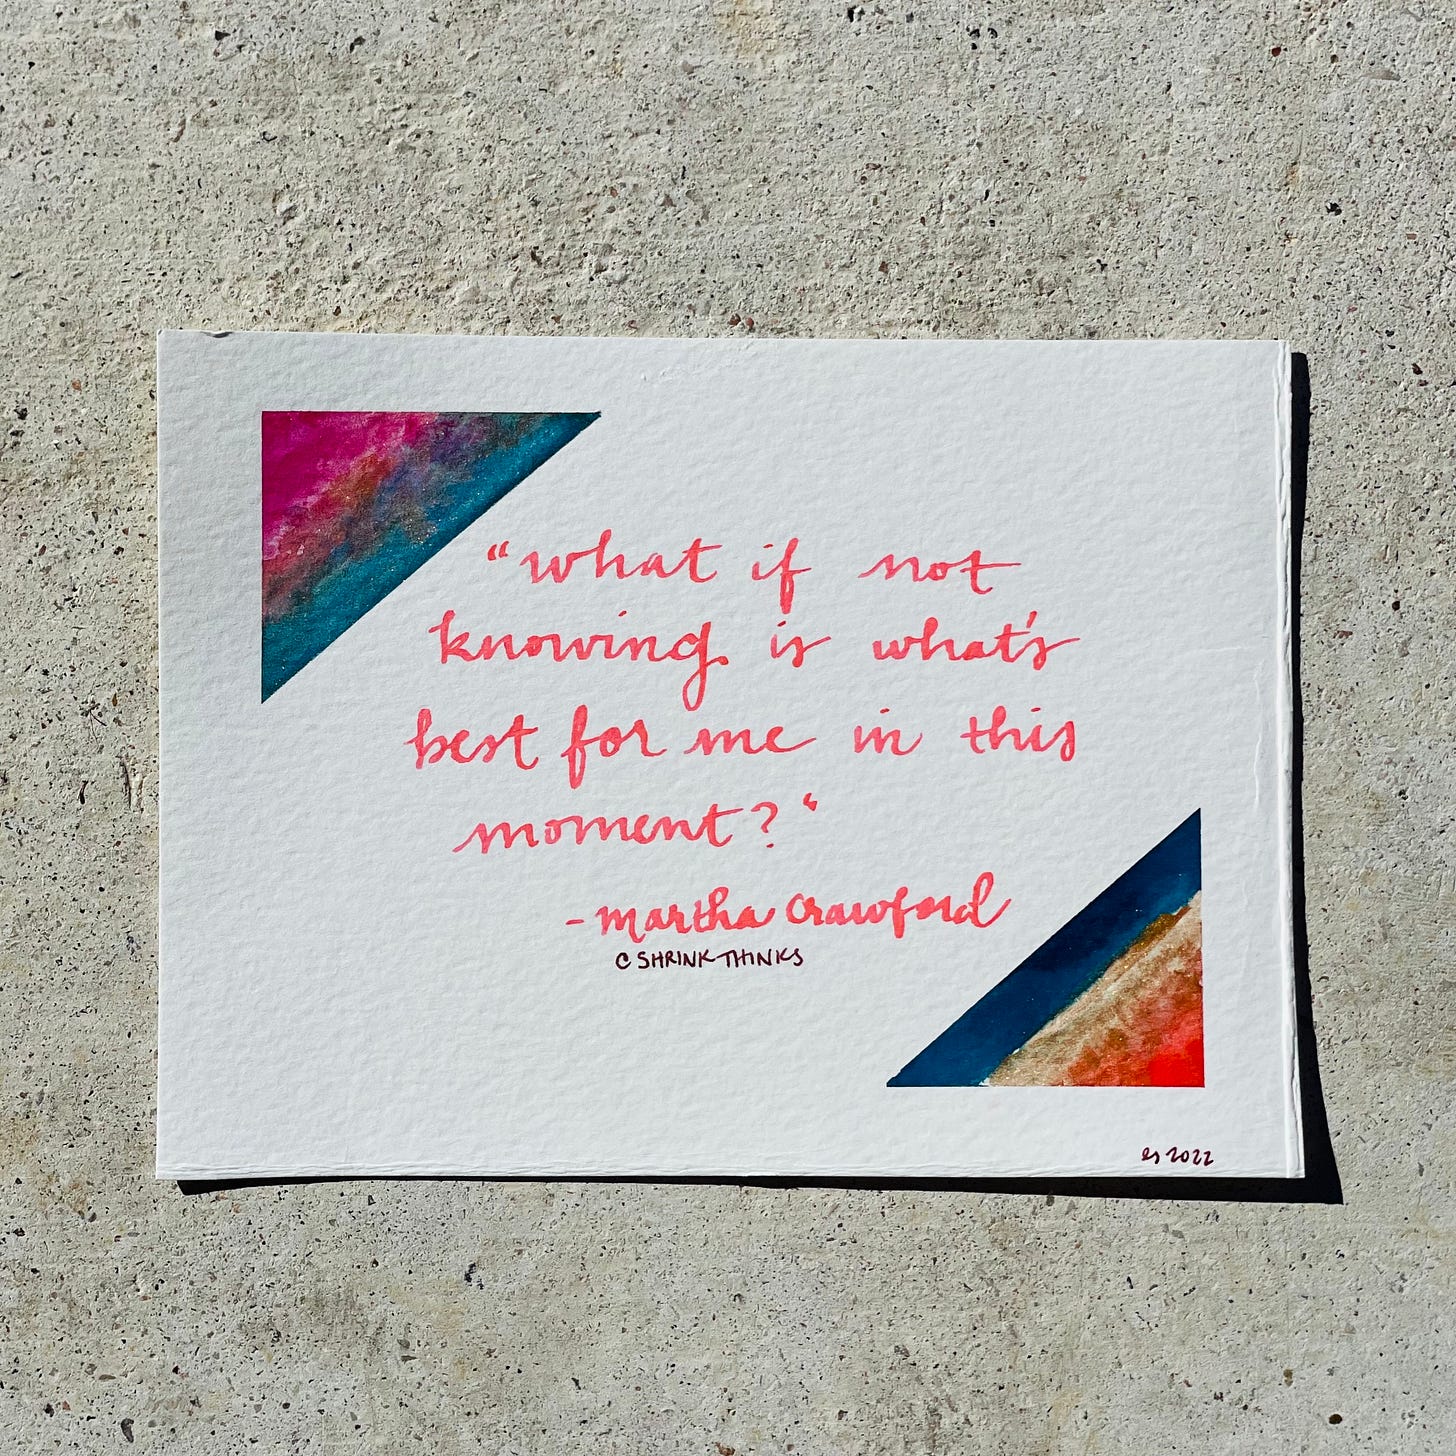 “what if not
knowing is what's
best for me in this
moment?“
- Martha Crawford
C SHRINK THINKS
es 2022